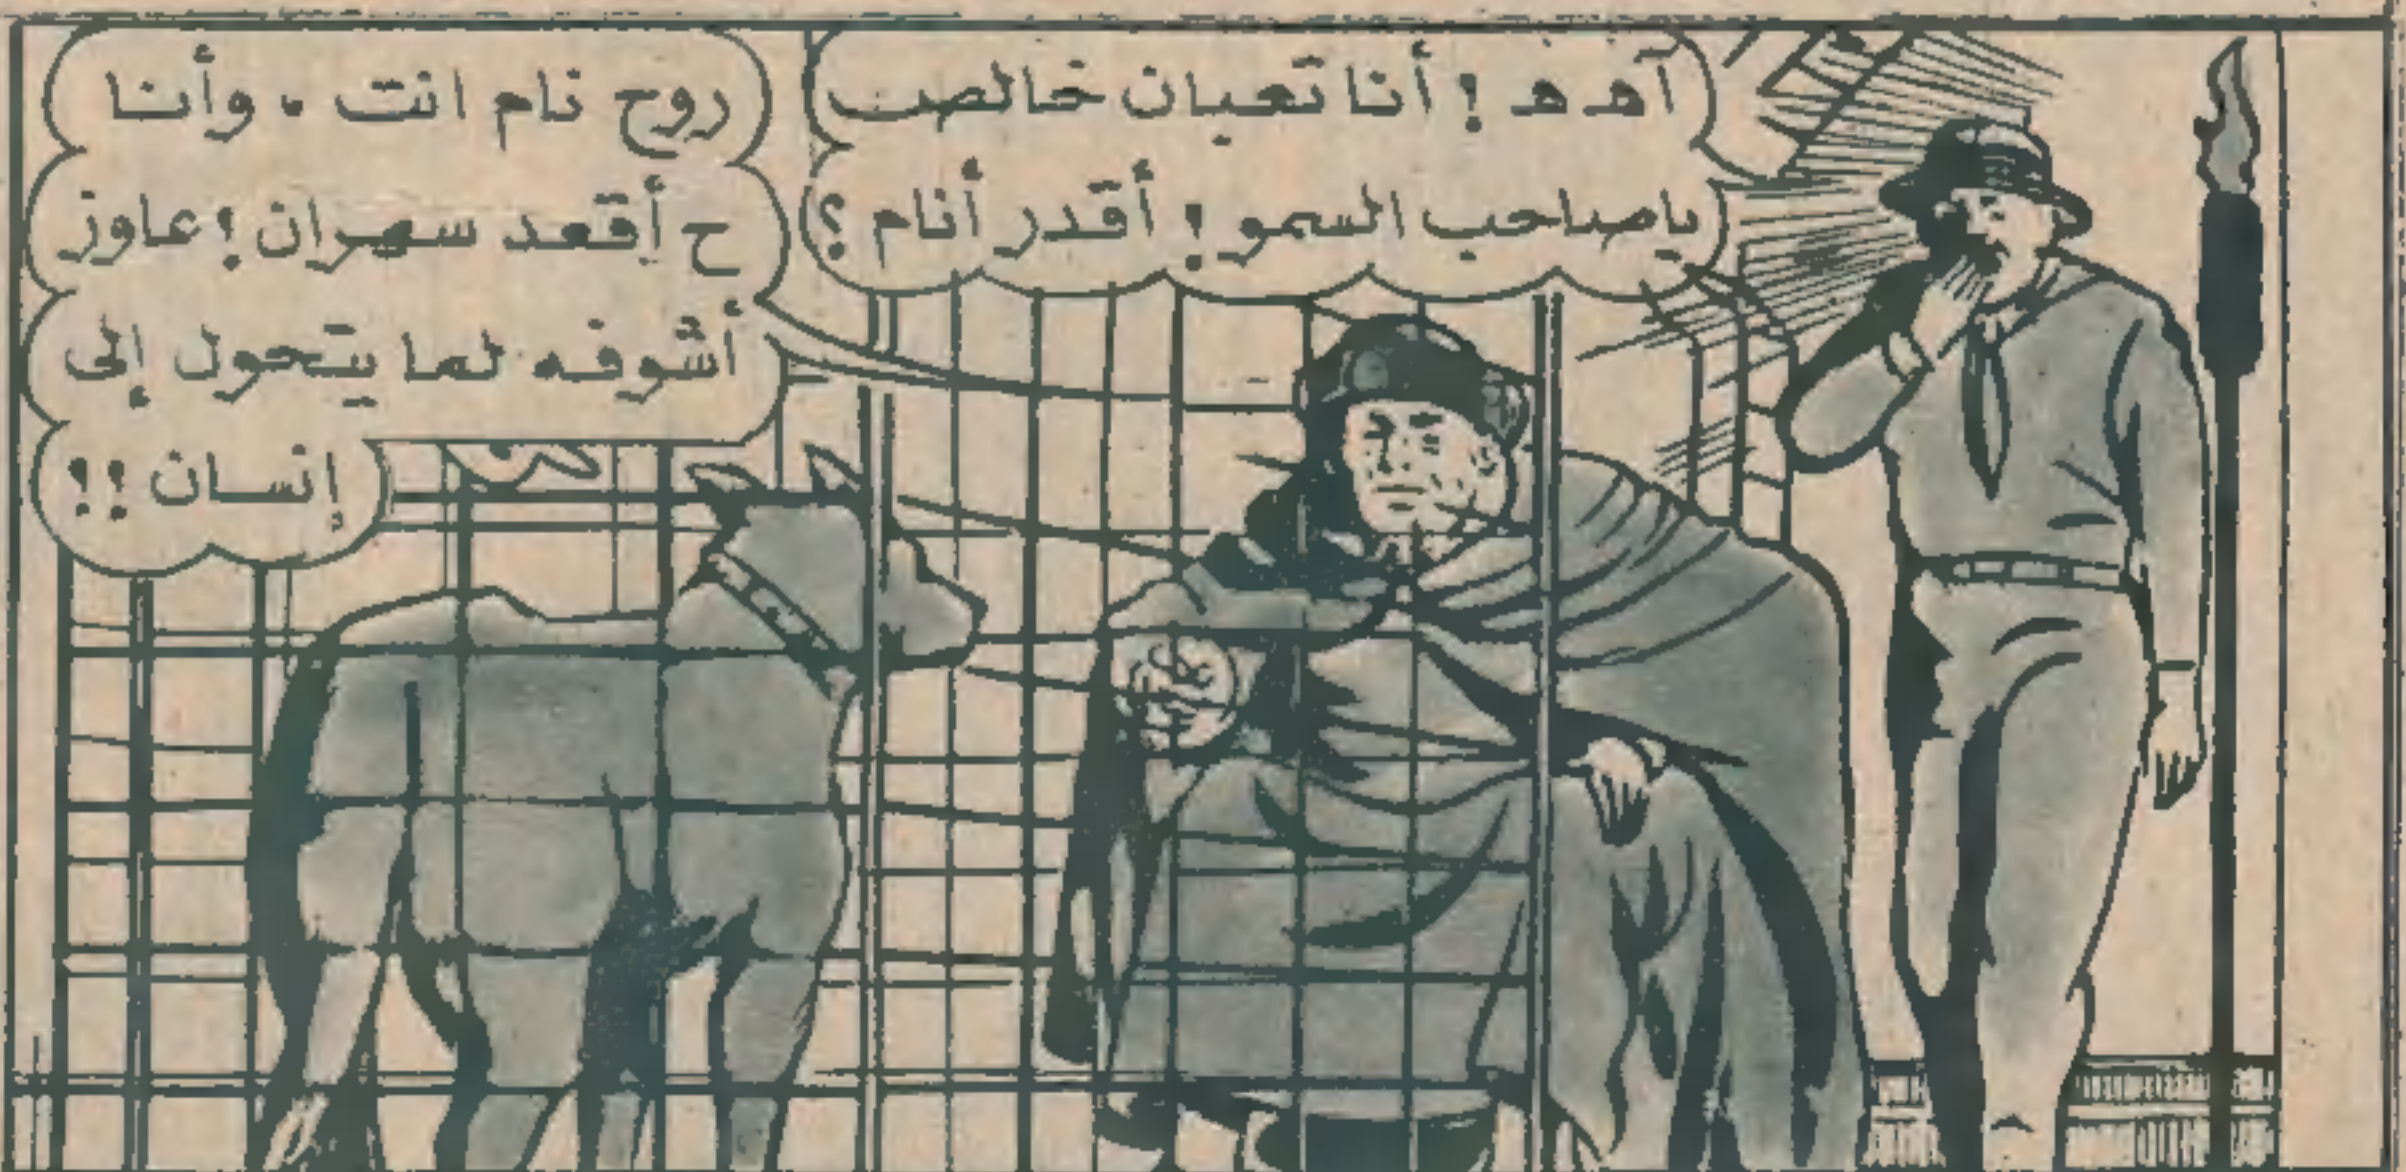 آهـ هـ ! أنا تعبان خالص
ياصاحب السمو ! أقدر أنام ؟
روح نام انت ، وأنا
ح أقعد سهران ! عاوز
أشوفه لما يتحول إلى
إنسان !!